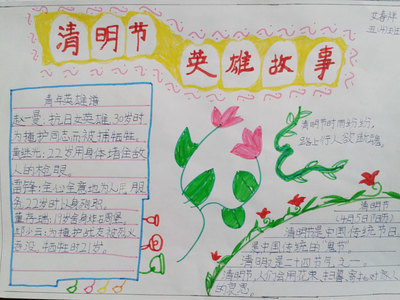 清明节
英雄故事
五(4)班
青年英雄谱
赵一曼,抗日女英雄,30岁时,
为掩护同志而被捕牺牲。
黄继光:22岁用身体堵金敌
人的枪眼。
雷锋:全心全意地为人民服
务22岁时以身殉职。
董存瑞:19岁舍身炸毁碉堡。
邱少云:为掩护战友被烈火
吞没,牺牲时21岁。
清明节时雨纷纷,
路上行人欲断魂。
清明节
(4月5日前后)
清明节是中国传统节日,
是中国传统的“鬼节”
清明是二十四节气之一。
清明节,人们会用花束、扫墓
的哀思。